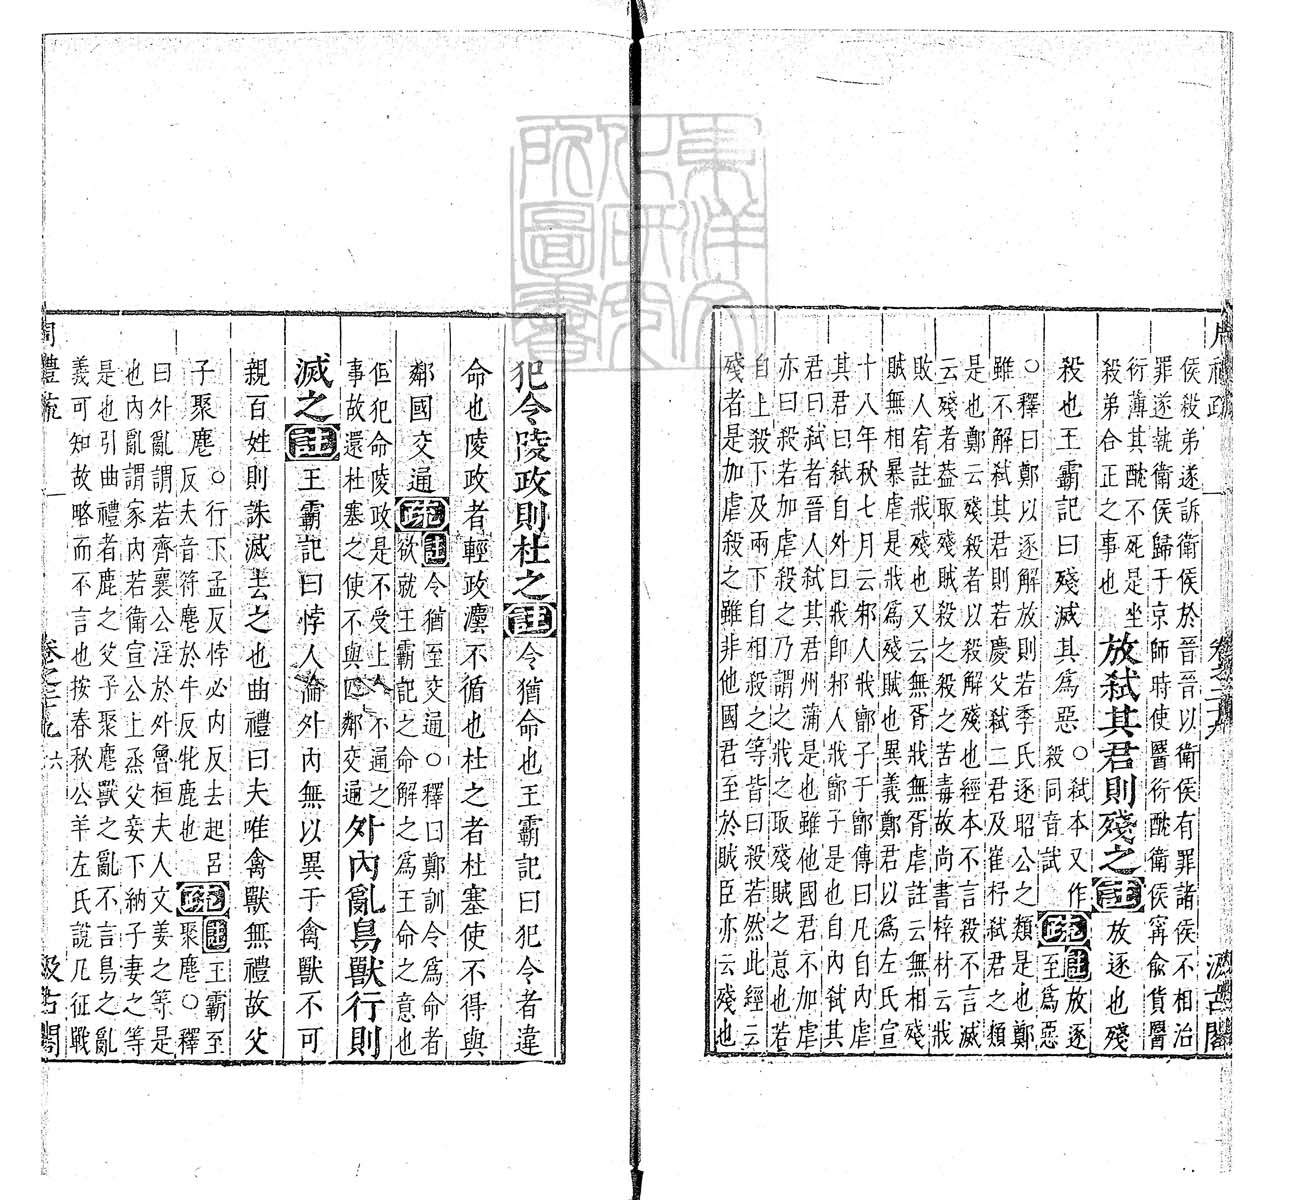 侯殺弟遂訴衛侯於晉晉以衛侯有罪諸侯不相治
罪遂執衛侯歸于京師時使醫衍酖衛侯甯俞貨醫
衍薄其酖不死是坐
殺弟合正之事也
放弑其君則殘之註放逐也殘
殺也王霸記曰殘滅其為惡
○弑本又作
殺同音試
疏註放逐
至為惡
○釋曰鄭以逐解放則若季氏逐昭公之類是也鄭
雖不解弑其君則若慶父弑二君及崔杼弑君之類
是也鄭云殘殺者以殺解殘也經本不言殺不言滅
云殘者葢取殘賊殺之殺之苦毒故尚書梓材云戕
敗人宥註戕殘也又云無胥戕無胥虐註云無相殘
賊無相暴虐是戕為殘賊也異義鄭君以為左氏宣
十八年秋七月云邾人戕鄫子于鄫傳曰凡自內虐
其君曰弑自外曰戕卽邾人戕鄫子是也自內弑其
君曰弑者晉人弑其君州蒲是也雖他國君不加虐
亦曰殺若加虐殺之乃謂之戕之取殘賊之意也若
自上殺下及兩下自相殺之等皆曰殺若然此經云
殘者是加虐殺之雖非他國君至於賊臣亦云殘也
犯令陵政則杜之註令猶命也王霸記曰犯令者違
命也陵政者輕政灋不循也杜之者杜塞使不得與
鄰國交通疏註令猶至交通○釋曰鄭訓令為命者
欲就王霸記之命解之為王命之意也
但犯命陵政是不受上
不通之
事故還杜塞之使不與四鄰交通
外內亂鳥獸行則
滅之註王霸記曰悖人倫外內無以異于禽獸不可
親百姓則誅滅去之也曲禮曰夫唯禽獸無禮故父
子聚麀
○行下孟反悖必內反去起呂
反夫音符麀於牛反牝鹿也
疏註王霸至
聚麀○釋
曰外亂謂若齊襄公淫於外魯桓夫人文姜之等是
也內亂謂家內若衛宣公上烝父妾下納子妻之等
是也引曲禮者鹿之父子聚麀獸之亂不言鳥之亂
義可知故略而不言也按春秋公羊左氏說凡征戰
周禮疏
卷之二十九
六
汲古閣